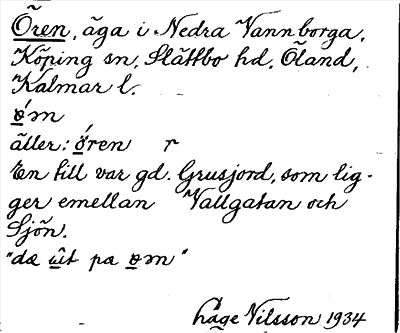 Ören, äga i Nedra Vannborga,
Köping sn, Slättbo hd, Öland,
Kalmar l.
ǿən
äller: ö́ren r
En till var gd. Grusjord, som lig-
ger emellan Vallgatan och
Sjön.
"dæ ût pa øən"
håge Nilsson 1934